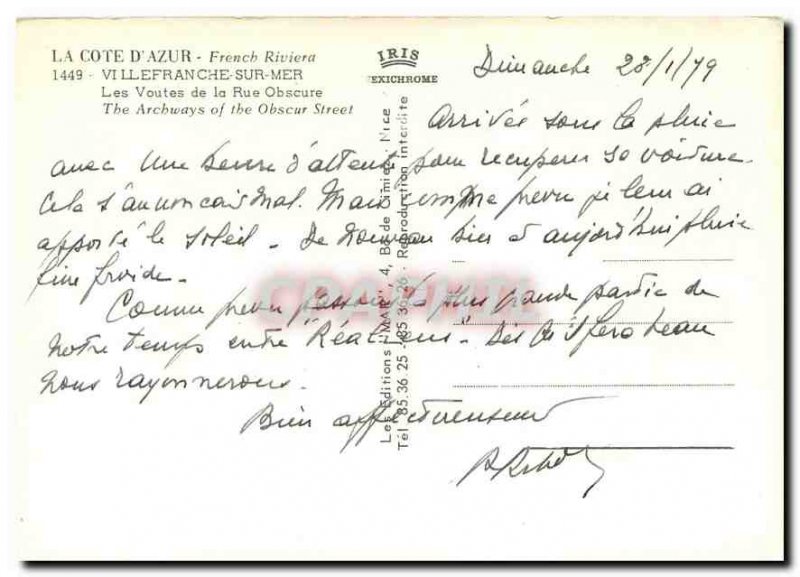 LA COTE D'AZUR - French Riviera
1449 - VILLEFRANCHE-SUR-MER
Les Voutes de la Rue Obscure
The Archways of the Obscur Street
IRIS
MEXICHROME
Les Editions "MAR", 4, Bd de Cimiez - Nice
Tél. 85.36.25 - 85.36.26 - Reproduction interdite
Dimanche 28/1/79
Arrivée sous la pluie
avec une heure d'attente pour recuperer so voiture.
Cela s'annoncait mal. Mais comme prevu je leur ai
apporté le soleil - De nouveau hier et aujourd'hui pluie
fine froide -
Comme prevu passons la plus grande partie de
notre temps entre "Réaliens" - Dès qu'il fera beau
nous rayonnerons.
Bien affectueusement